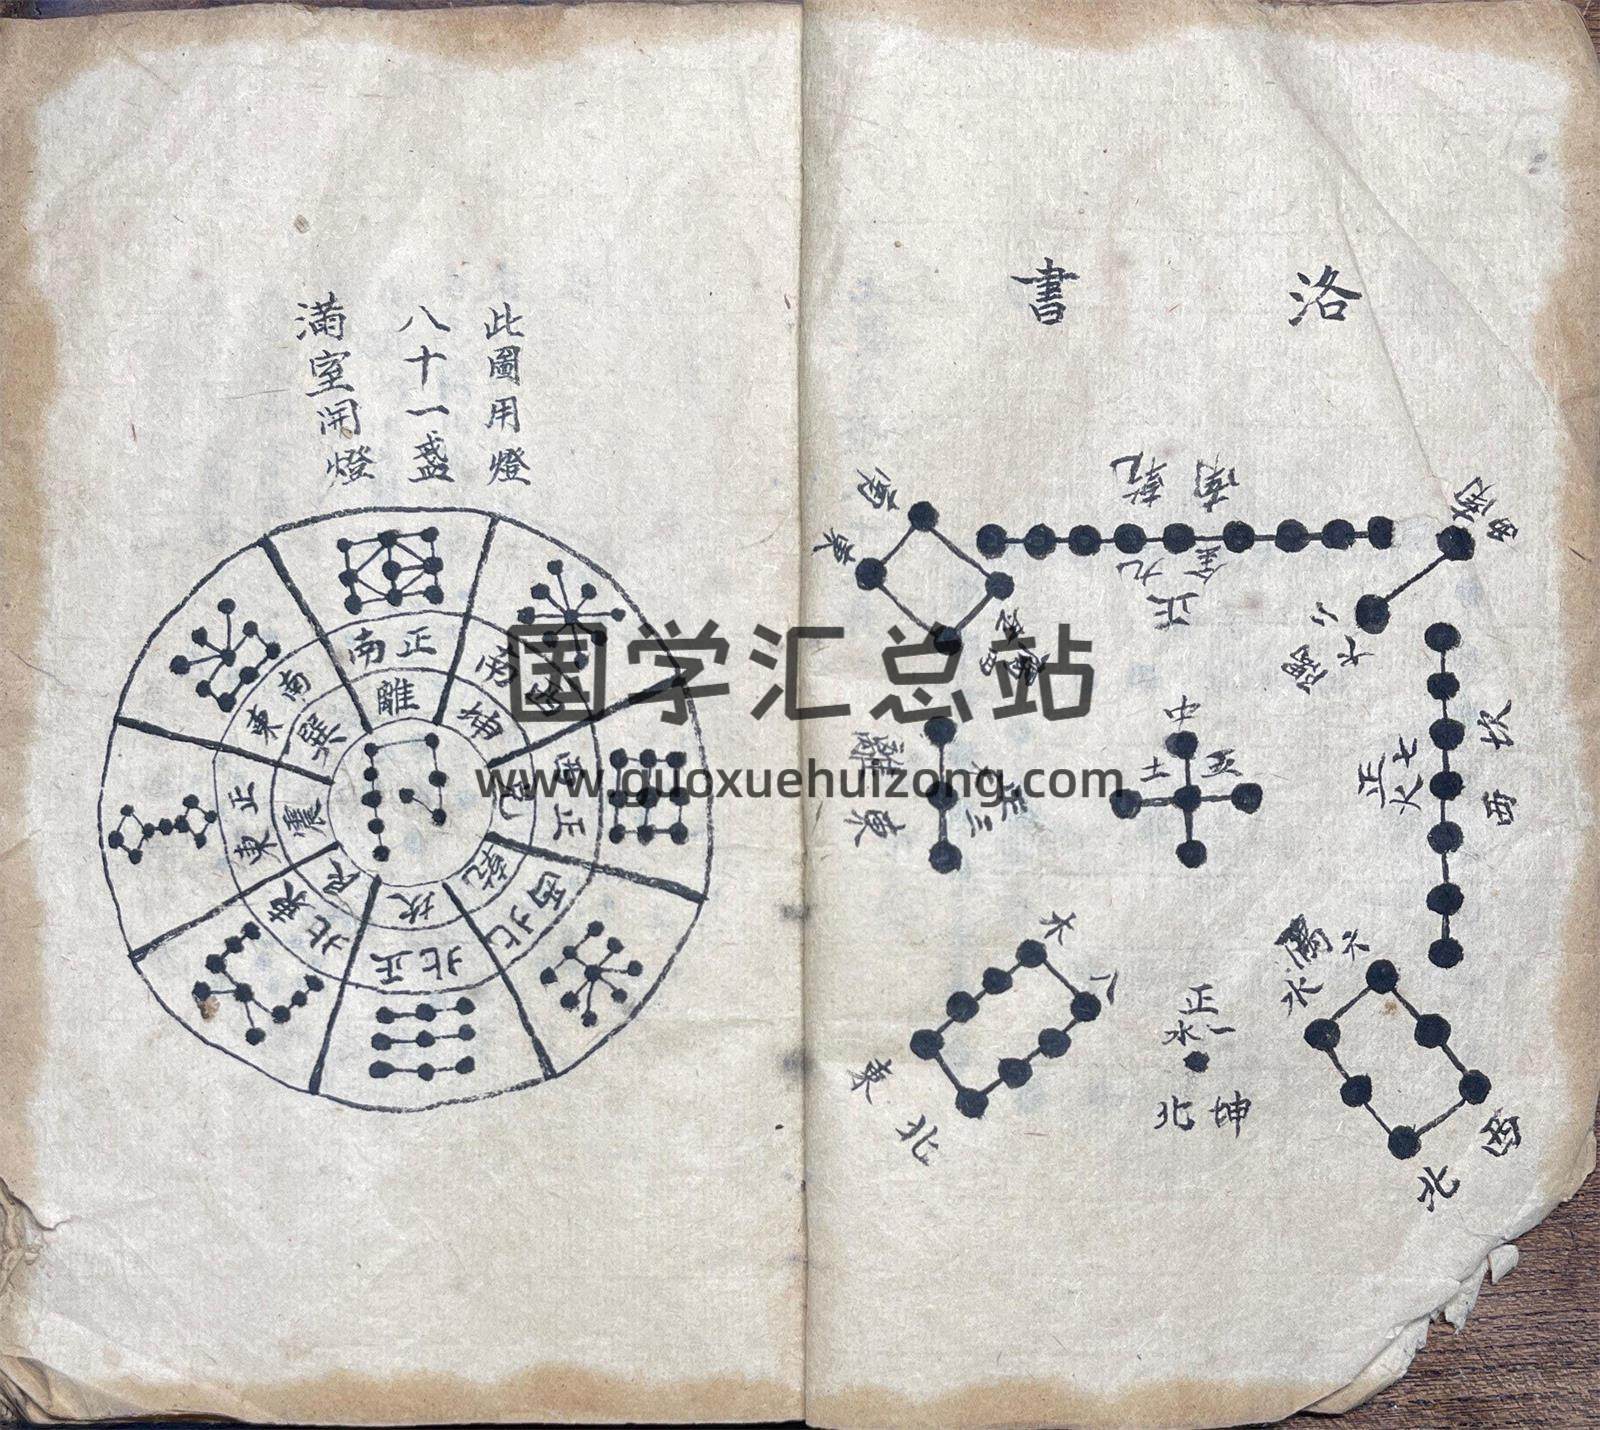 洛書
南乾
九金
正
西南
隅
南
東
中
土五
離東
正三
坎西
七
正火
隅六
水
西北
正
水一
坤北
木八
東北
此圖用燈
八十一盞
滿室開燈
正南
離
西南
坤
正西
兌
西北
乾
正北
坎
東北
艮
正東
震
東南
巽
国学汇总站
www.guoxuehuizong.com